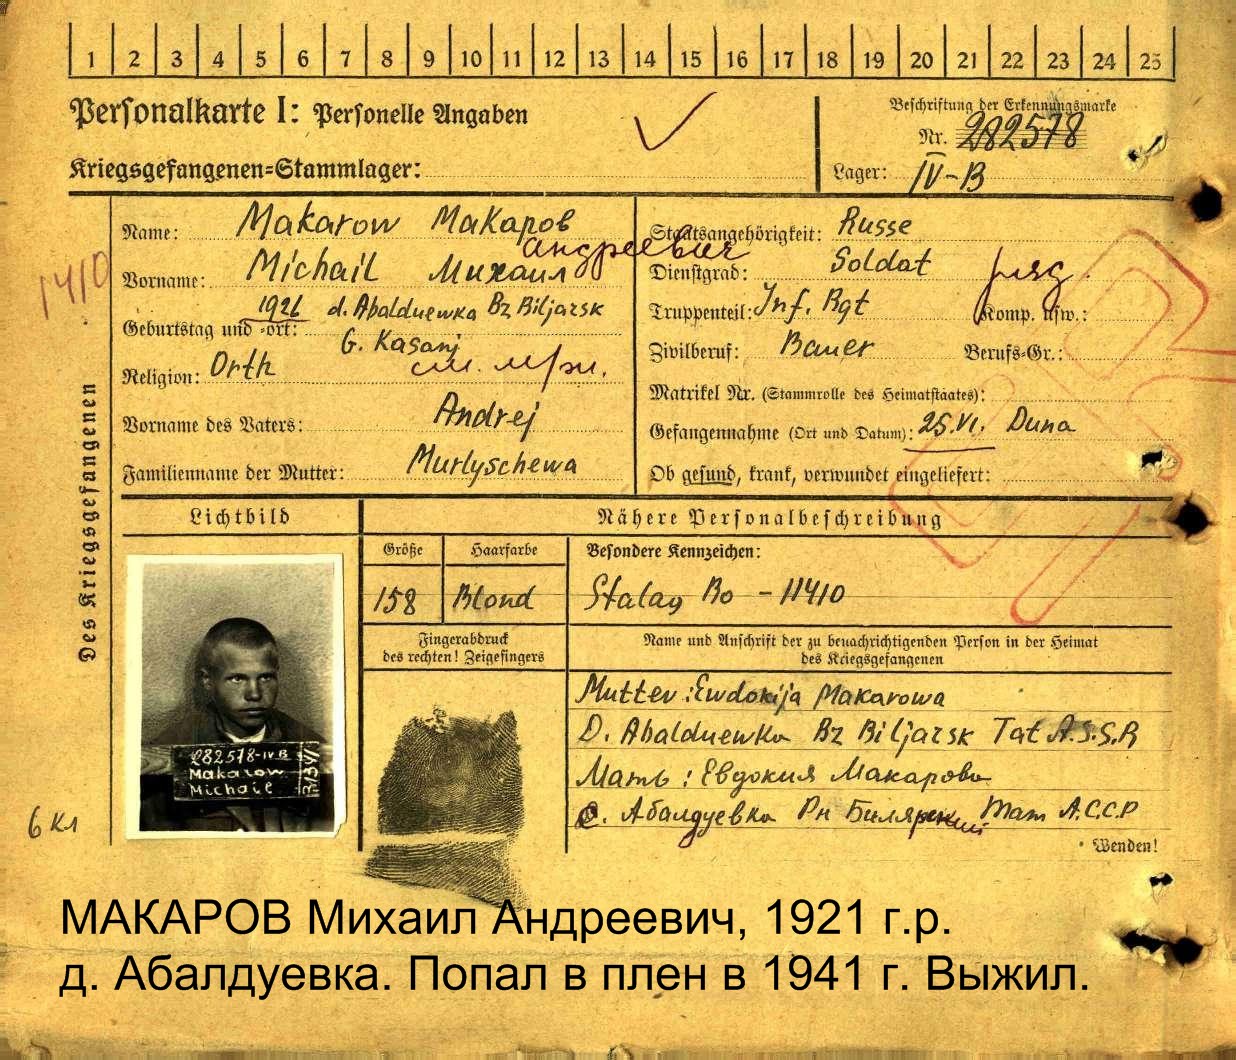 1 2 3 4 5 6 7 8 9 10 11 12 13 14 15 16 17 18 19 20 21 22 23 24 25
Personalkarte I: Personelle Angaben
Kriegsgefangenen=Stammlager:
Beschriftung der Erkennungsmarke
Nr. 282578
Lager: IV-B
Des Kriegsgefangenen
1410
Name: Makarow Макаров
андреевич
Vorname: Michail Михаил
1926 d. Abalduewka Bz Biljarsk
Geburtstag und =ort: G. Kasanj
Religion: Orth
Vorname des Vaters: Andrej
Familienname der Mutter: Murlyschewa
Staatsangehörigkeit: Russe
Dienstgrad: Soldat
Truppenteil: Inf. Rgt Komp. usw.:
Zivilberuf: Bauer Berufs=Gr.:
Matrikel Nr. (Stammrolle des Heimatstaates):
Gefangennahme (Ort und Datum): 25.VI. Duna
Ob gesund, krank, verwundet eingeliefert:
Lichtbild
Nähere Personalbeschreibung
Größe Haarfarbe
158 Blond
Besondere Kennzeichen:
Stalag Bo - 11410
Fingerabdruck
des rechten! Zeigefingers
Name und Anschrift der zu benachrichtigenden Person in der Heimat
des Kriegsgefangenen
Mutter: Ewdokija Makarowa
D. Abalduewka Bz Biljarsk Tat A.S.S.R
Мать: Евдокия Макарова
с. Абалдуевка Рн Билярский Тат А.С.С.Р
Wenden!
282578-IVB
Makarow
Michail
6 кл
МАКАРОВ Михаил Андреевич, 1921 г.р.
д. Абалдуевка. Попал в плен в 1941 г. Выжил.